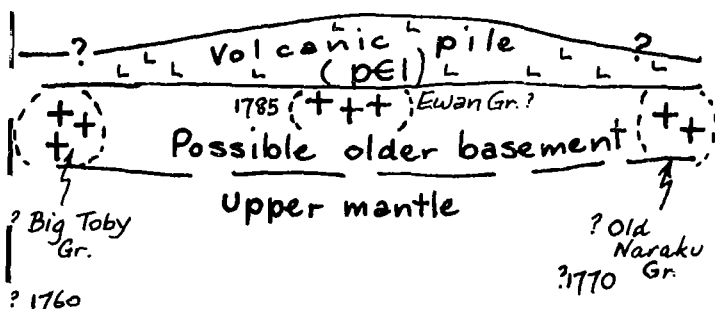 ? Volcanic pile ?
(p€l)
1785 Ewan Gr.?
Possible older basement
Upper mantle
? Big Toby
Gr.
? 1760
? Old
Naraku
Gr.
?1770